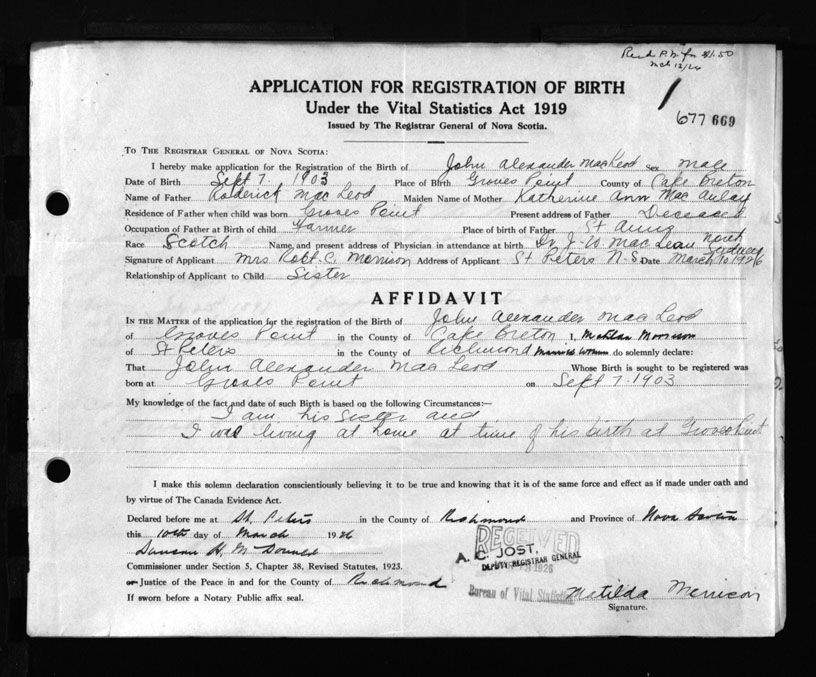 Recd P.N. for $1.50
Mch 12/26
APPLICATION FOR REGISTRATION OF BIRTH
Under the Vital Statistics Act 1919
Issued by The Registrar General of Nova Scotia.
1
677 669
TO THE REGISTRAR GENERAL OF NOVA SCOTIA:
I hereby make application for the Registration of the Birth of John Alexander MacLeod Sex Male
Date of Birth Sept 7. 1903 Place of Birth Groves Point County of Cape Breton
Name of Father Roderick Mac Leod Maiden Name of Mother Katherine Ann MacAulay
Residence of Father when child was born Groves Point Present address of Father Deceased
Occupation of Father at Birth of child Farmer Place of birth of Father St Anns
Race Scotch Name, and present address of Physician in attendance at birth Dr J-W MacLean North Sydney
Signature of Applicant Mrs Robt. C. Morrison Address of Applicant St Peters N.S. Date March 10 1926
Relationship of Applicant to Child Sister
AFFIDAVIT
IN THE MATTER of the application for the registration of the Birth of John Alexander Mac Leod
of Groves Point in the County of Cape Breton I, Matilda Morrison
of St Peters in the County of Richmond Married Woman do solemnly declare:
That John Alexander Mac Leod Whose Birth is sought to be registered was
born at Groves Point on Sept 7. 1903
My knowledge of the fact and date of such Birth is based on the following Circumstances:—
I am his Sister and
I was living at home at time of his birth at Groves Point
I make this solemn declaration conscientiously believing it to be true and knowing that it is of the same force and effect as if made under oath and
by virtue of The Canada Evidence Act.
Declared before me at St. Peters in the County of Richmond and Province of Nova Scotia
this 10th day of March 1926
Duncan H. McDonald
Commissioner under Section 5, Chapter 38, Revised Statutes, 1923.
or Justice of the Peace in and for the County of Richmond
If sworn before a Notary Public affix seal.
RECEIVED
A. C. JOST,
DEPUTY REGISTRAR GENERAL
1926
Bureau of Vital Statistics
Matilda Morrison
Signature.